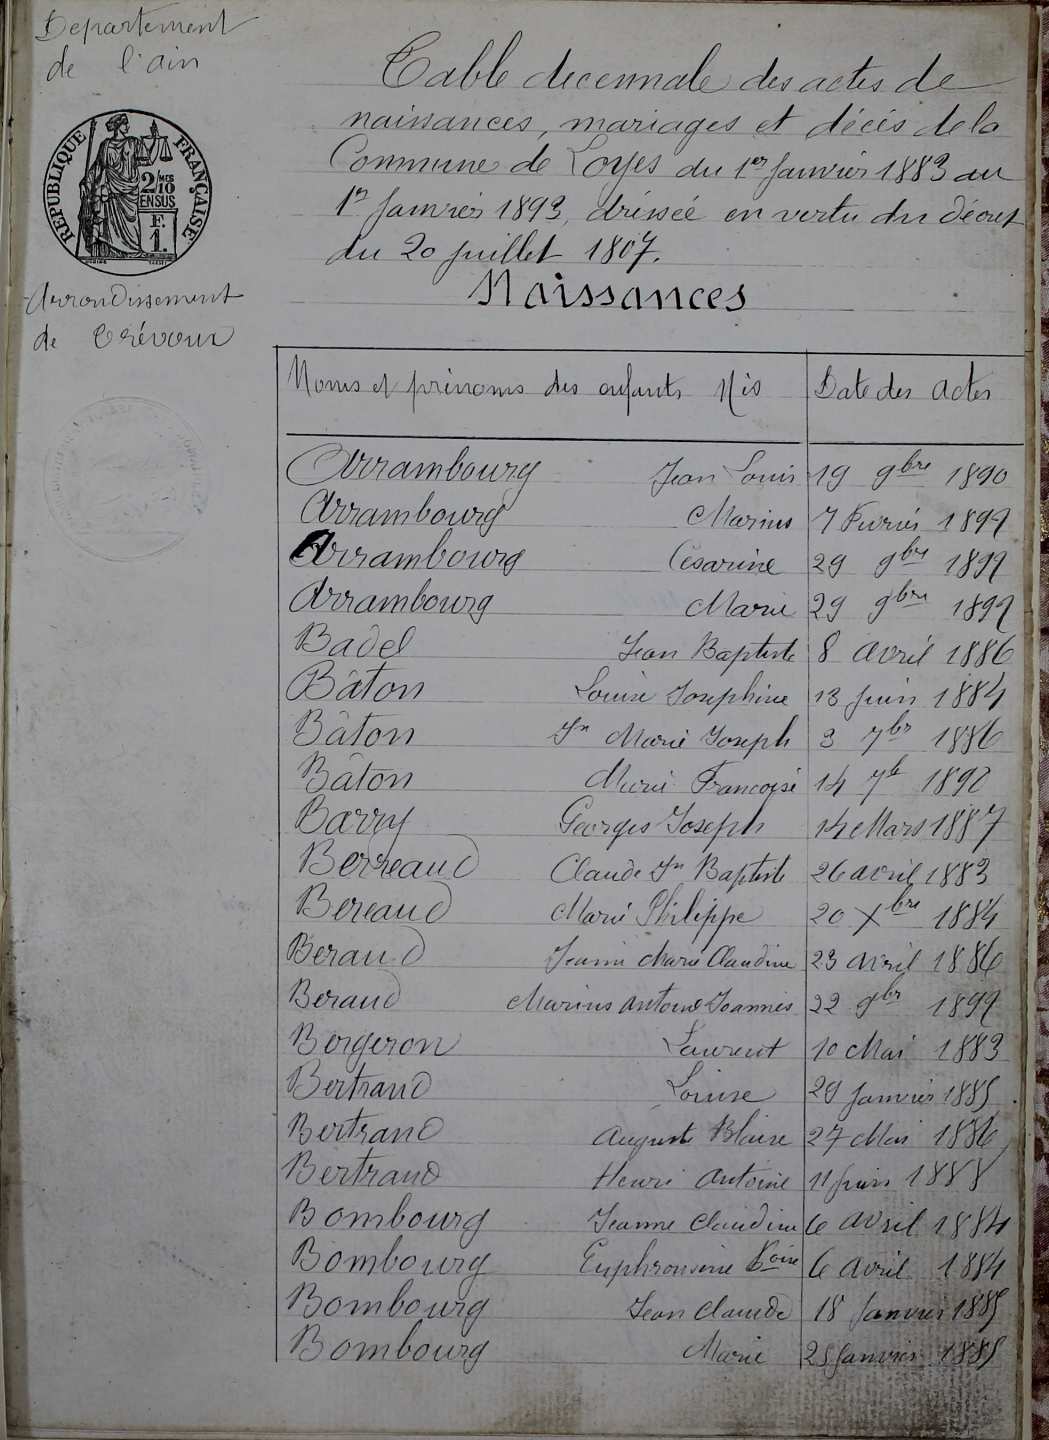 Departement
de l'ain
RÉPUBLIQUE FRANÇAISE
2/10 MES
EN SUS
F.
1.
Arrondissement
de Trévoux
Table decennale des actes de
naissances, mariages et décès de la
Commune de Loyes du 1er Janvier 1883 au
1er Janvier 1893, dressée en vertu du décret
du 20 juillet 1807.
Naissances
Noms et prénoms des enfants Nés Date des actes
Arrambourg Jean Louis 19 9bre 1890
Arrambourg Marius 7 Fevrier 1892
Arrambourg Césarine 29 9bre 1892
Arrambourg Marie 29 9bre 1892
Badel Jean Baptiste 8 avril 1886
Bâton Louise Josephine 13 juin 1884
Bâton Jn Marie Joseph 3 7br 1886
Bâton Marie Francoise 14 7b 1892
Barry Georges Joseph 14 Mars 1887
Berreaud Claude Jn Baptiste 26 avril 1883
Bereaud Marie Philippe 20 Xbre 1884
Beraud Jeanne Marie Claudine 23 avril 1886
Beraud Marius Antoine Joannès 22 9br 1892
Bergeron Laurent 10 Mai 1883
Bertrand Louise 29 Janvier 1885
Bertrand Auguste Blaise 27 Mai 1886
Bertrand Henri Antoine 11 juin 1888
Bombourg Jeanne Claudine 6 avril 1884
Bombourg Euphrousine 6 avril 1884
Bombourg Jean Claude 18 Janvier 1885
Bombourg Marie 25 Janvier 1885